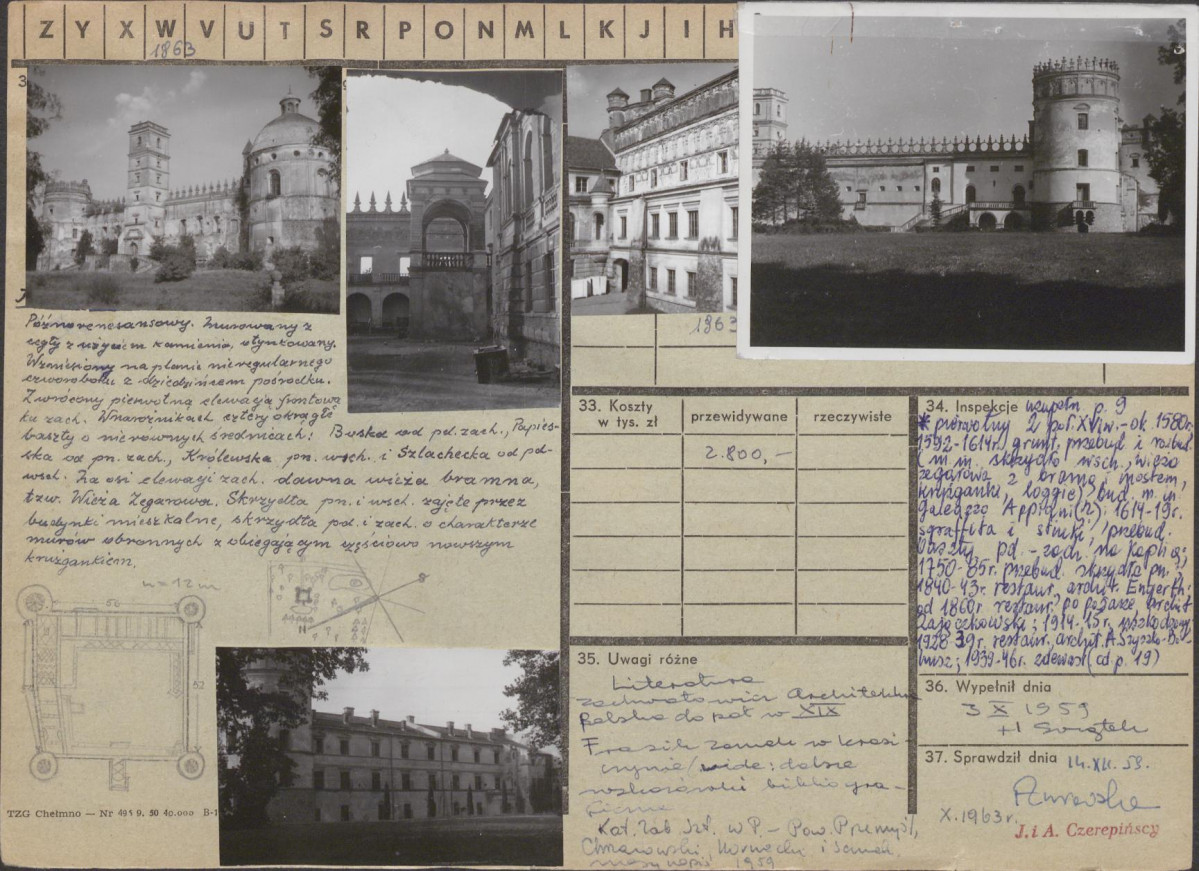 Z Y X W V U T S R P O N M L K J I H
1863
Późnorenesansowy. Murowany z
cegły z użyciem kamienia, otynkowany.
Wzniesiony na planie nieregularnego
czworoboku z dziedzińcem pośrodku.
Zwrócony pierwotną elewacją frontową
ku zach. W narożnikach cztery okrągłe
baszty o nierównych średnicach: Boska od pd. zach., Papies-
ska od pn. zach., Królewska pn. wsch. i Szlachecka od pd-
wsch. Na osi elewacji zach. dawna wieża bramna,
tzw. Wieża Zegarowa. Skrzydła pn. i wsch. zajęte przez
budynki mieszkalne, skrzydła pd. i zach. o charakterze
murów obronnych z obiegającym częściowo nowszym
krużgankiem.
n = 12 m
56
62
N
S
TZG Chełmno — Nr 495 9. 50 40.000 B-1
1963
33. Koszty w tys. zł
przewidywane
rzeczywiste
2.800,-
34. Inspekcje uzupełn p. 9
* pierwotny 2 poł. XVI w. - ok. 1580r.
1592-1614r. grunt. przebud. i rozbud.
(m.in. skrzydło wsch., wieża
zegarowa z bramą i mostem,
krużganki, loggie), bud. m. in.
Galeazzo Appiani(?); 1614-19r.
sgraffita i stiuki, przebud.
baszty pd.-zach. na kaplicę;
1750-85r. przebud. skrzydła pn.;
1840-43r. restaur. archit. Engerth;
od 1860r. restaur. po pożarze archit.
Zajączkowski; 1914-15r. uszkodzony;
1928-39r. restaur. archit. A. Szyszko-Bo-
husz; 1939-46r. zdewast. (cd p. 19)
35. Uwagi różne
Literatura
Zachwatowicz Architektura
Polska do poł w XIX
Frazik Zamek w Krasi-
czynie /wide: dalsze
wskazówki bibliogra-
ficzne
Kat. Zab. Szt. w P. - Pow. Przemyśl,
Chrzanowski, Kornecki i Samek
maszynopis 1959
36. Wypełnił dnia
3 X 1959
37. Sprawdził dnia 14.XII.59.
X.1963r.
J. i A. Czerepińscy